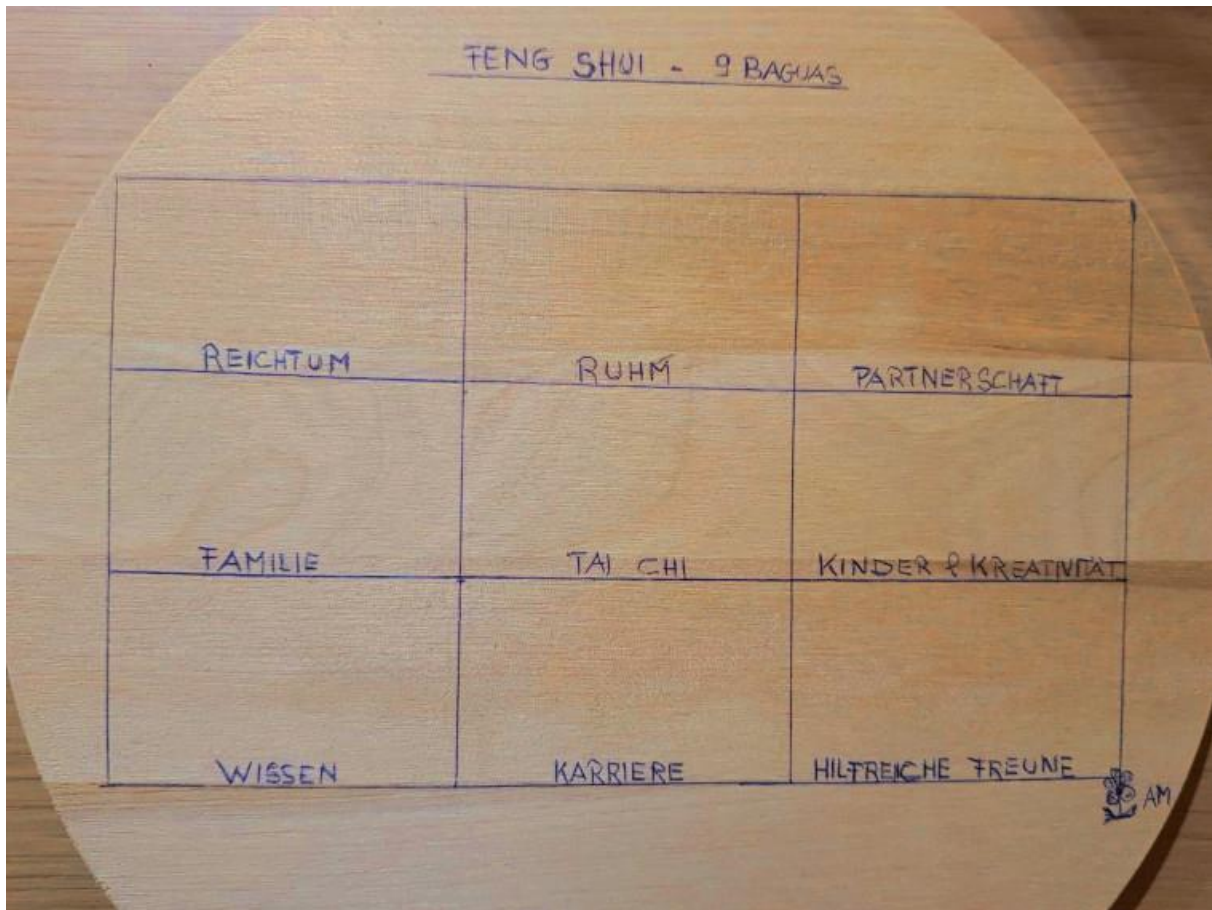 FENG SHUI - 9 BAGUAS
REICHTUM RUHM PARTNERSCHAFT
FAMILIE TAI CHI KINDER & KREATIVITÄT
WISSEN KARRIERE HILFREICHE FREUNE
AM